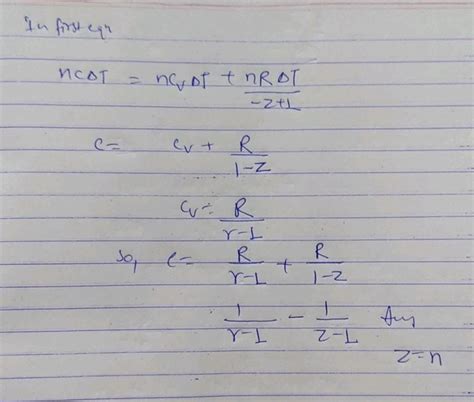 In first eqn
nCΔT = nCvΔT + nRΔT/-z+1
C = Cv + R/1-z
Cv = R/γ-1
So, C = R/γ-1 + R/1-z
1/γ-1 - 1/z-1 Ans
z=n